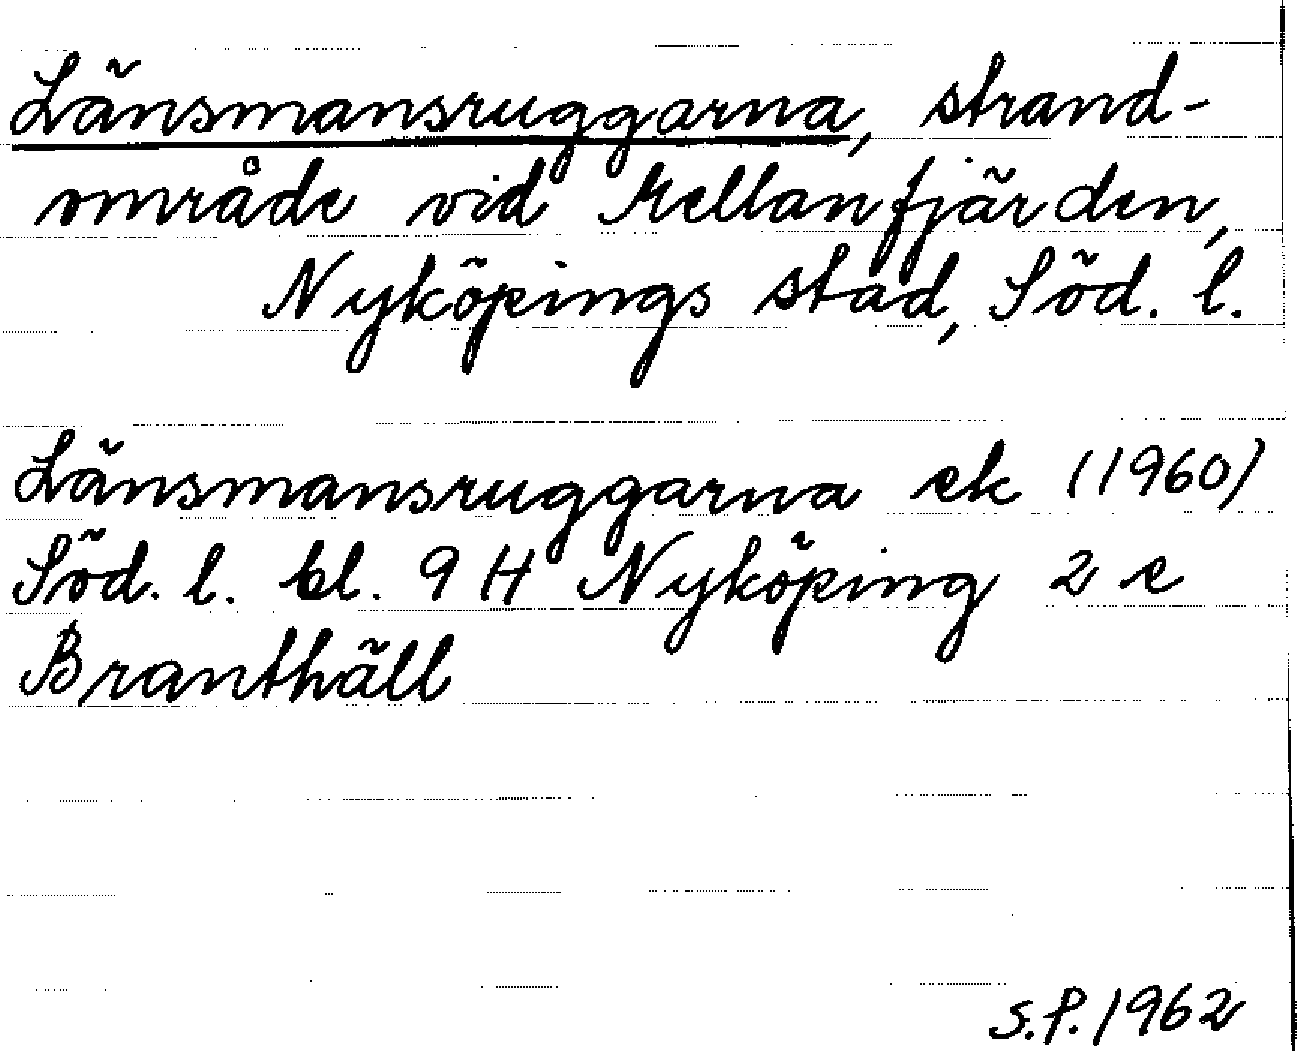 Länsmansruggarna, strand-
område vid Mellanfjärden,
Nyköpings stad, Söd. l.
Länsmansruggarna ek (1960)
Söd. l. bl. 9 H Nyköping 2 e
Branthäll
S.P. 1962